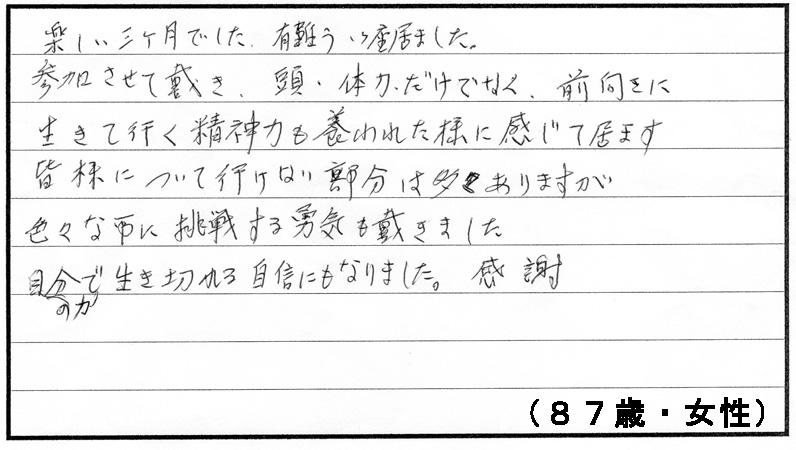 楽しい三ケ月でした。有難うい座居ました。
参加させて戴き、頭・体力だけでなく、前向きに
生きて行く精神力も養われた様に感じて居ます
皆様について行けない部分は多くありますが
色々な面に挑戦する勇気も戴きました
自分の力で生き切れる自信にもなりました。感謝
(87歳・女性)